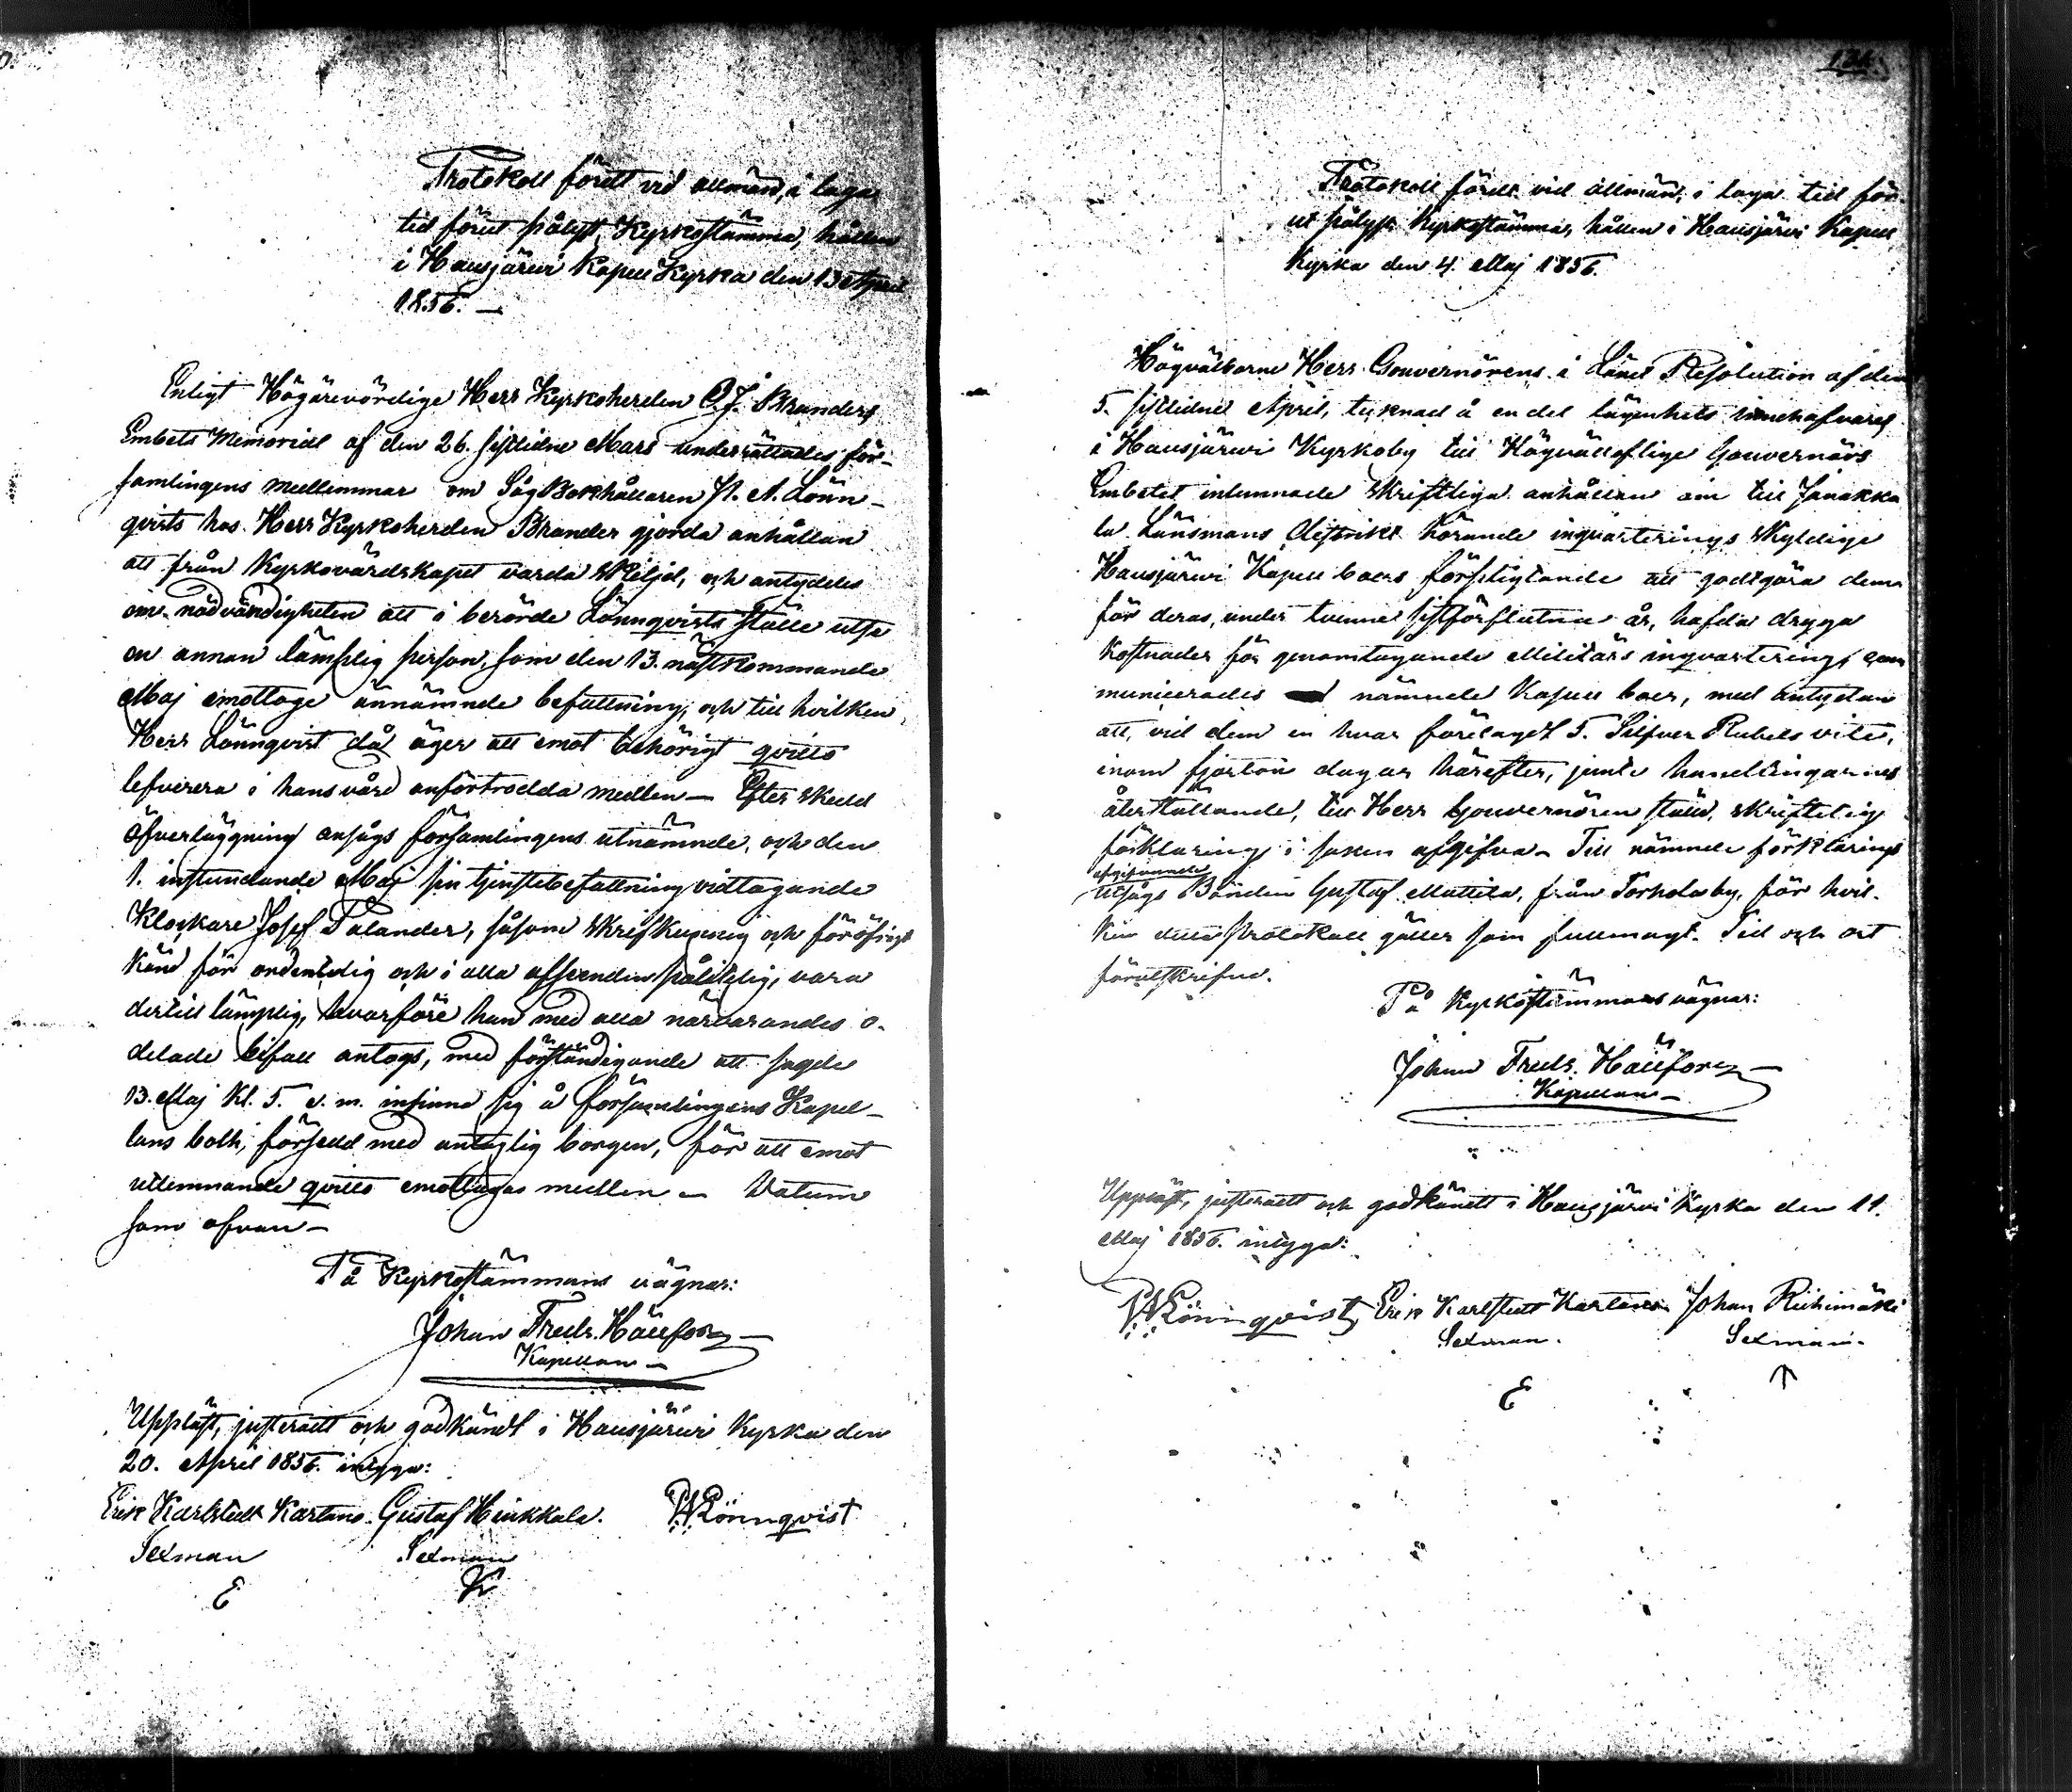 Protokoll fördt vid allmän, i laga
tid förut pålyst Kyrkostämma, hållen
i Hausjärwi Kapell Kyrka den 13 April
1856. —
Enligt Högärevördige Herr Kyrkoherden C. J. Branders
Embets Memorial af den 26. sistlidne Mars underrättades för-
samlingens medlemmar om Såg Bokhållaren P. A. Lönn-
qvists hos Herr Kyrkoherden Brander gjorda anhållan
att från Kyrkovärdskapet varda skiljd, och antyddes
om nödvändigheten att i berörde Lönnqvists ställe utse
en annan lämplig person, som den 13. nästkommande
Maj emottoge ännämnde befattning, och till hvilken
Herr Lönnqvist då äger att emot behörigt qvitto
lefverera i hans vård anförtrodda medlen — Efter skedd
öfverläggning ansågs församlingens utnämnde, och den
1. instundande Maj sin tjenstebefattning vidtagande
Klockare Josef Palander, såsom skrifkunnig och föröfrigt
känd för ordentelig och i alla afseenden pålitelig, vara
dertill lämplig, hvarföre han med alla närvarandes o-
delade bifall antogs, med förständigande att sagde
13. Maj Kl. 5. e. m. infinna sig å församlingens Kapel-
lans both, försedd med antaglig borgen, för att emot
utlemnande qvitto emottaga medlen — Datum
som ofvan —
På Kyrkostämmans vägnar:
Johan Fredr. Hällfors
Kapellan —
Uppläst, justeradt och godkändt i Hausjärwi Kyrka den
20. April 1856. intyga:
Erik Karlstedt Kartano. Gustaf Hinkkala. PALönnqvist
Sexman Sexman
E
Protokoll fördt vid allmän, i laga tid för-
ut pålyst Kyrkostämma, hållen i Hausjärvi Kapell
Kyrka den 4. Maj 1856.
Högvälborne Herr Gouvernörens i Länet Resolution af den
5. sistlidne April, tecknad å en del lägenhets innehafvares
i Hausjärwi Kyrkoby till Högvälloflige Gouvernörs
Embetet inlemnade skriftliga anhållan om till Janakka
la Länsmans distrikt hörande inqvarterings skyldige
Hausjärwi Kapell boers förpligtande att godtgöra dem
för deras, under tvenne sistförflutna år, hafda dryga
kostnader för genomtågande Militärs inqvartering, com
municerades nämnde Kapell boer, med antydan
att, vid dem en hvar förelagdt 5. Silfver Rubels vite,
inom fjorton dagar härefter, jemte handlingarnes
återställande, till Herr Gouvernören ställd, skriftelig
förklaring i saken afgifva — Till nämnde förklarings
afgifvande
utsågs Bonden Gustaf Mattila, från Torhola by, för hvil-
ken detta protokoll gäller som fullmagt. Tid och ort
förutskrifne.
På Kyrkostämmans vägnar:
Johan Fredr. Hällfors —
Kapellan —
Uppläst, justeradt och godkändt i Hausjärvi Kyrka den 11.
Maj 1856. intyga:
PALönnqvist, Erik Karlstedt Kartano Johan Riihimäki
Sexman. Sexman.
E